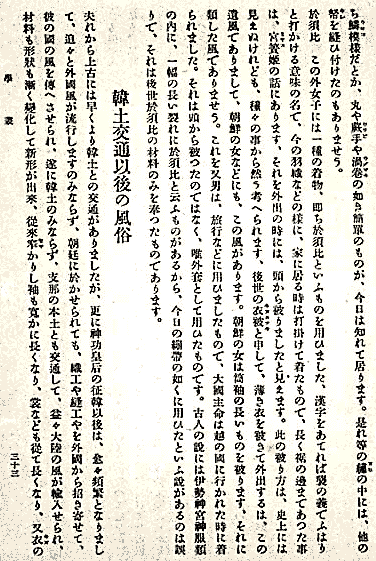 ち鱗模様だとか、丸や蕨手や渦卷の如き簡單のものが、今日は知れて居ります。是れ等の種の中には、他の
帑を縫ひ付けたのもありませう。
於須比　この外女子には一種の着物、即ち於須比といふものを用ひました、漢字をあてれば襲の義でふはり
と打かける意味の名で、今の羽織などの樣に、家に居る時は打掛けて着たもので、長く裾の邊まであつた事
は、宮簀姫の話にあります、それを外出の時には、頭から被りましたと見えます。此の被り方は、史上には
見えぬけれども、種々の事から然う考へられます、後世の衣被と申して、薄き衣を被きて外出するは、この
遺風でありまして、朝鮮の女などにも、この風があります。朝鮮の女は筒袖の長いものを被ります、それに
類した風でありませう。これを又男は、旅行などに用ひましたもので、大國主命は越の國に行かれた時に着
られました。それは頭から被つたのではなく、唯外套として用ひたものです。古人の說には伊勢神宮神服類
の内に、一幅の長い裂れに於須比と云ふものがあるから、今日の綳帶の如くに用ひたといふ說があるのは誤
りで、それは後世於須比の材料のみを奉つたものであります。
韓土交通以後の風俗
夫れから上古には早くより韓土との交通がありましたが、更に神功皇后の征韓以後は、愈々頻繁となりまし
て、追々と外國風が流行しますのみならず、朝廷に於かせられても、織工や縫工やを外國から招き寄せて、
彼の國の風を傳へさせられ、遂に韓土のみならず、支那の本土とも交通して、益々大陸の風が輸入せられ、
材料も形狀も漸く變化して新形が出來、從來窄かりし袖も寬かに長くなり、裳なども從て長くなり、又衣の
學叢
三十三